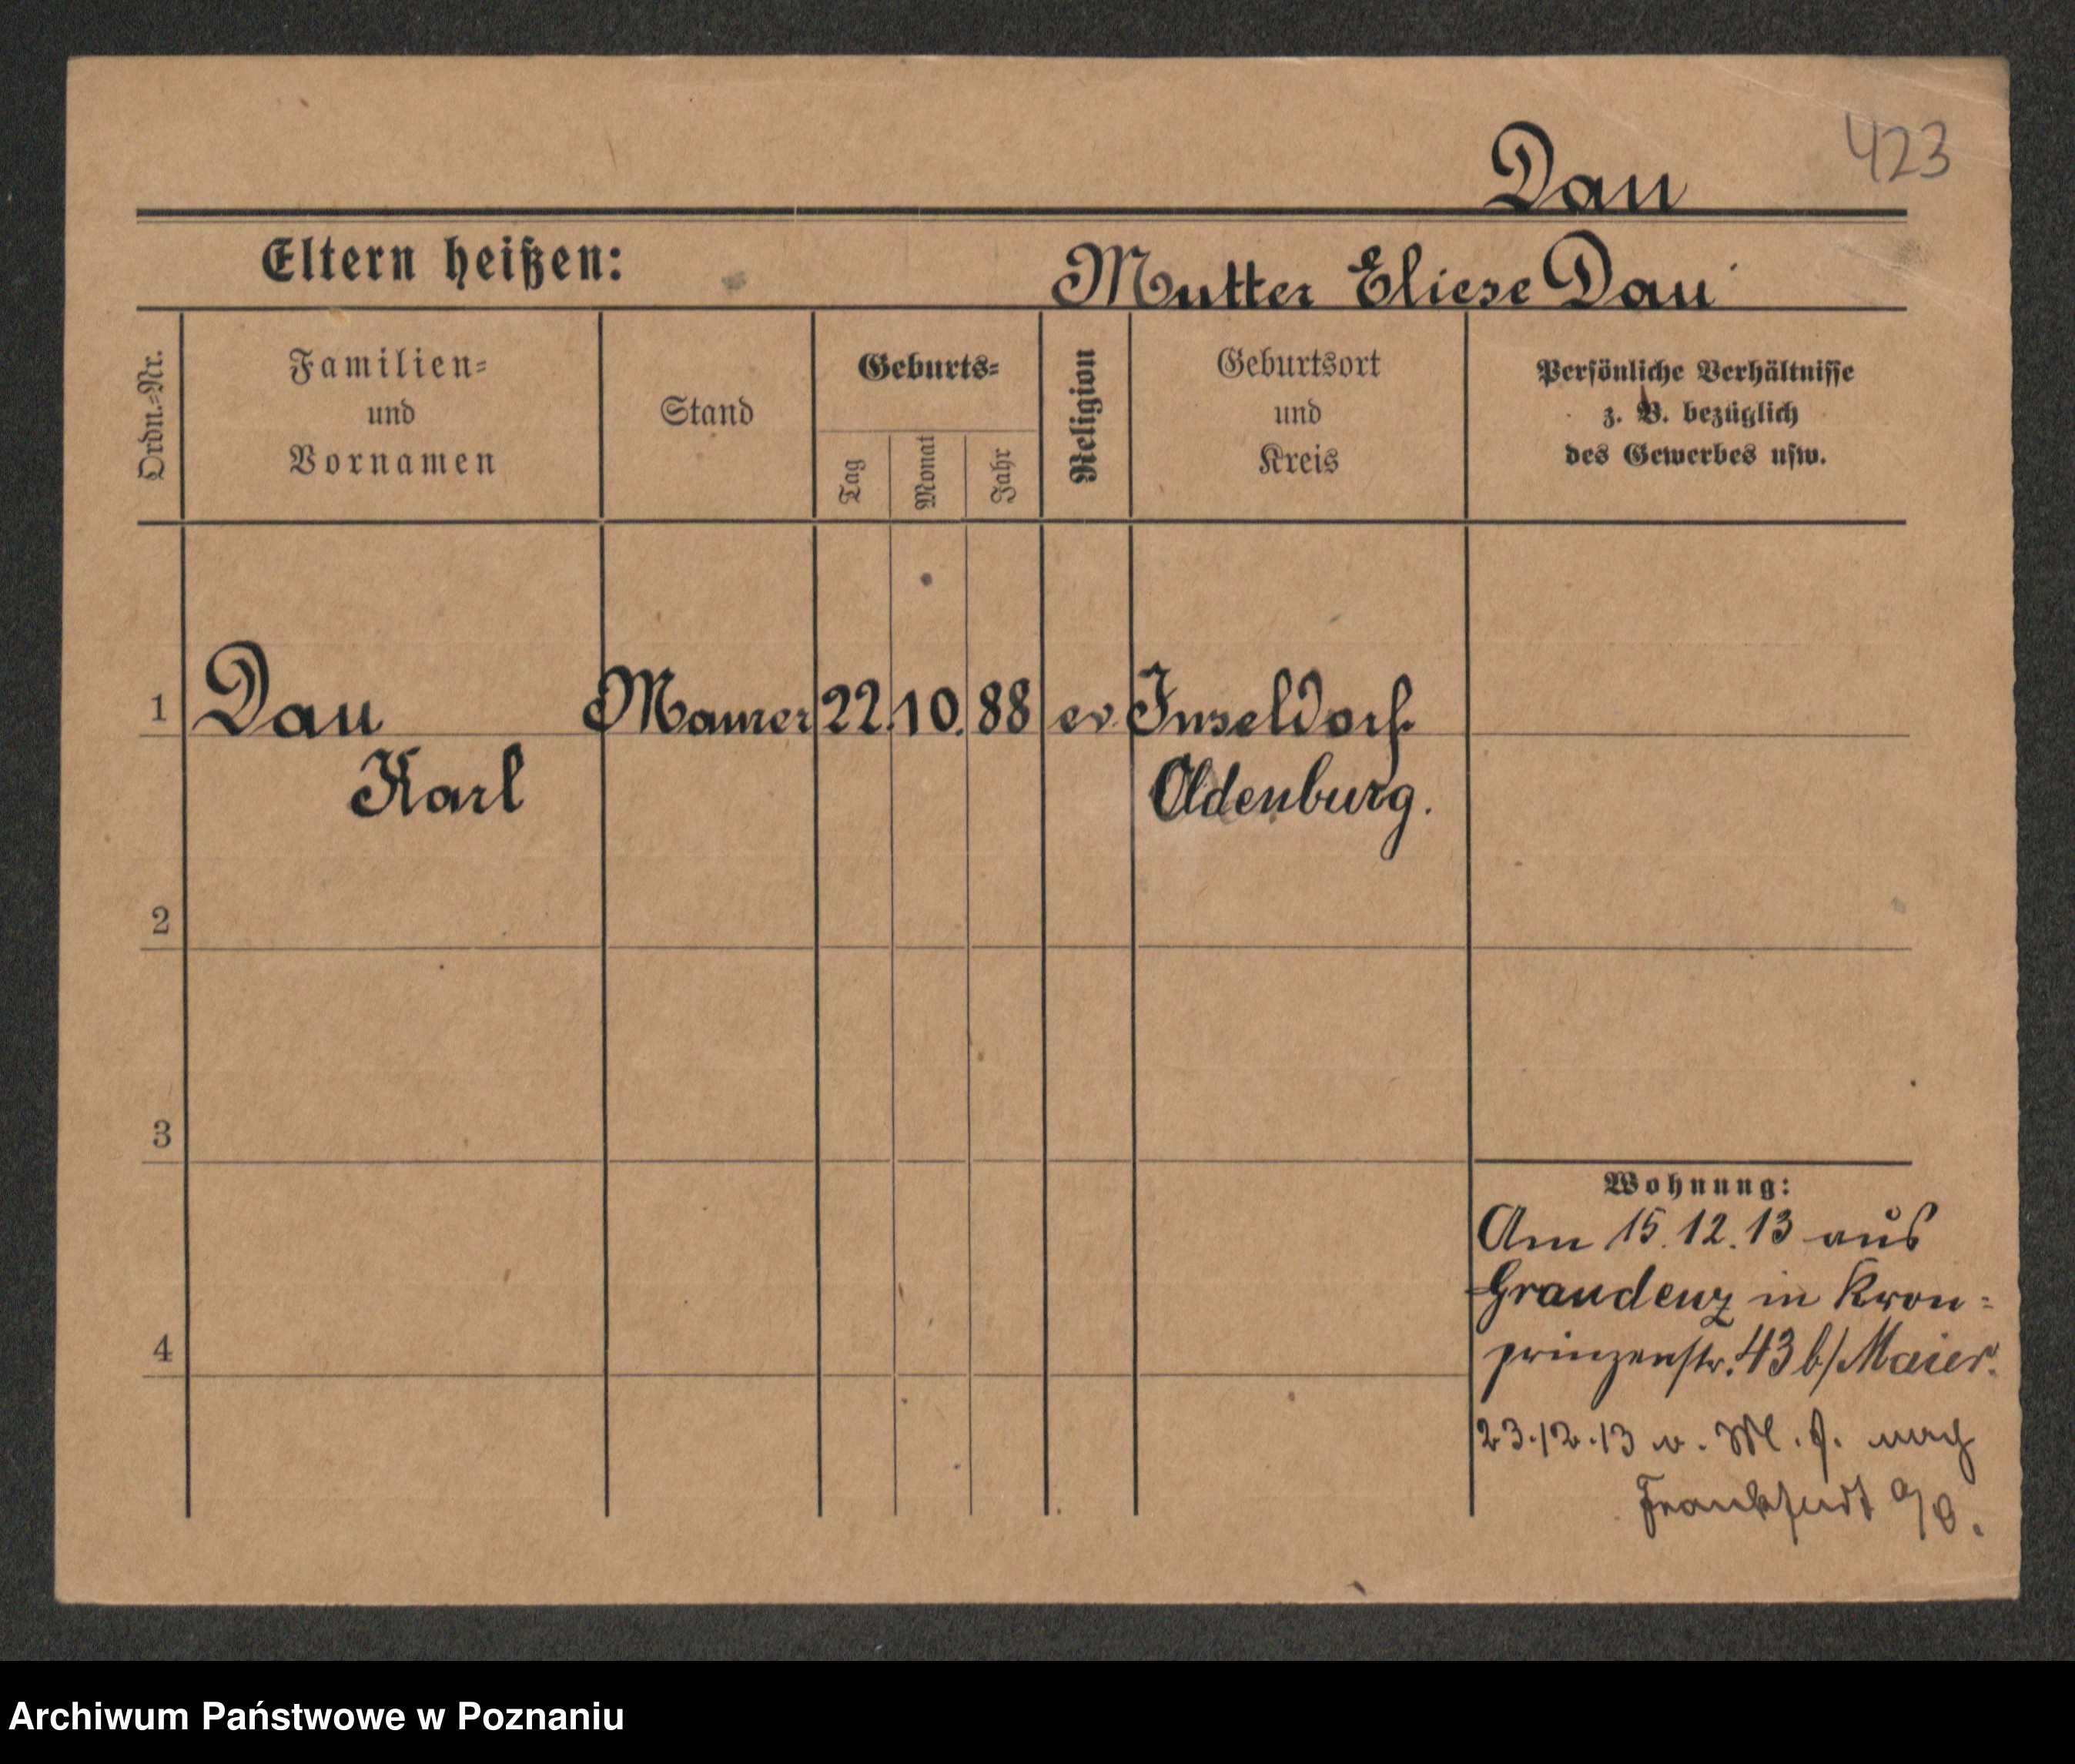 423
Dau
Eltern heißen: Mutter Eliese Dau
Ordn.-Nr.
Familien-
und
Vornamen
Stand
Geburts-
Tag
Monat
Jahr
Religion
Geburtsort
und
Kreis
Persönliche Verhältnisse
z. B. bezüglich
des Gewerbes usw.
1 Dau Maurer 22. 10. 88 ev. Inseldorf.
Karl Oldenburg.
2
3
4
Wohnung:
Am 15.12.13 aus
Graudenz in Kron-
prinzenstr. 43 b/Maier.
23.12.13 v. M. f. nach
Frankfurt a/O.
Archiwum Państwowe w Poznaniu